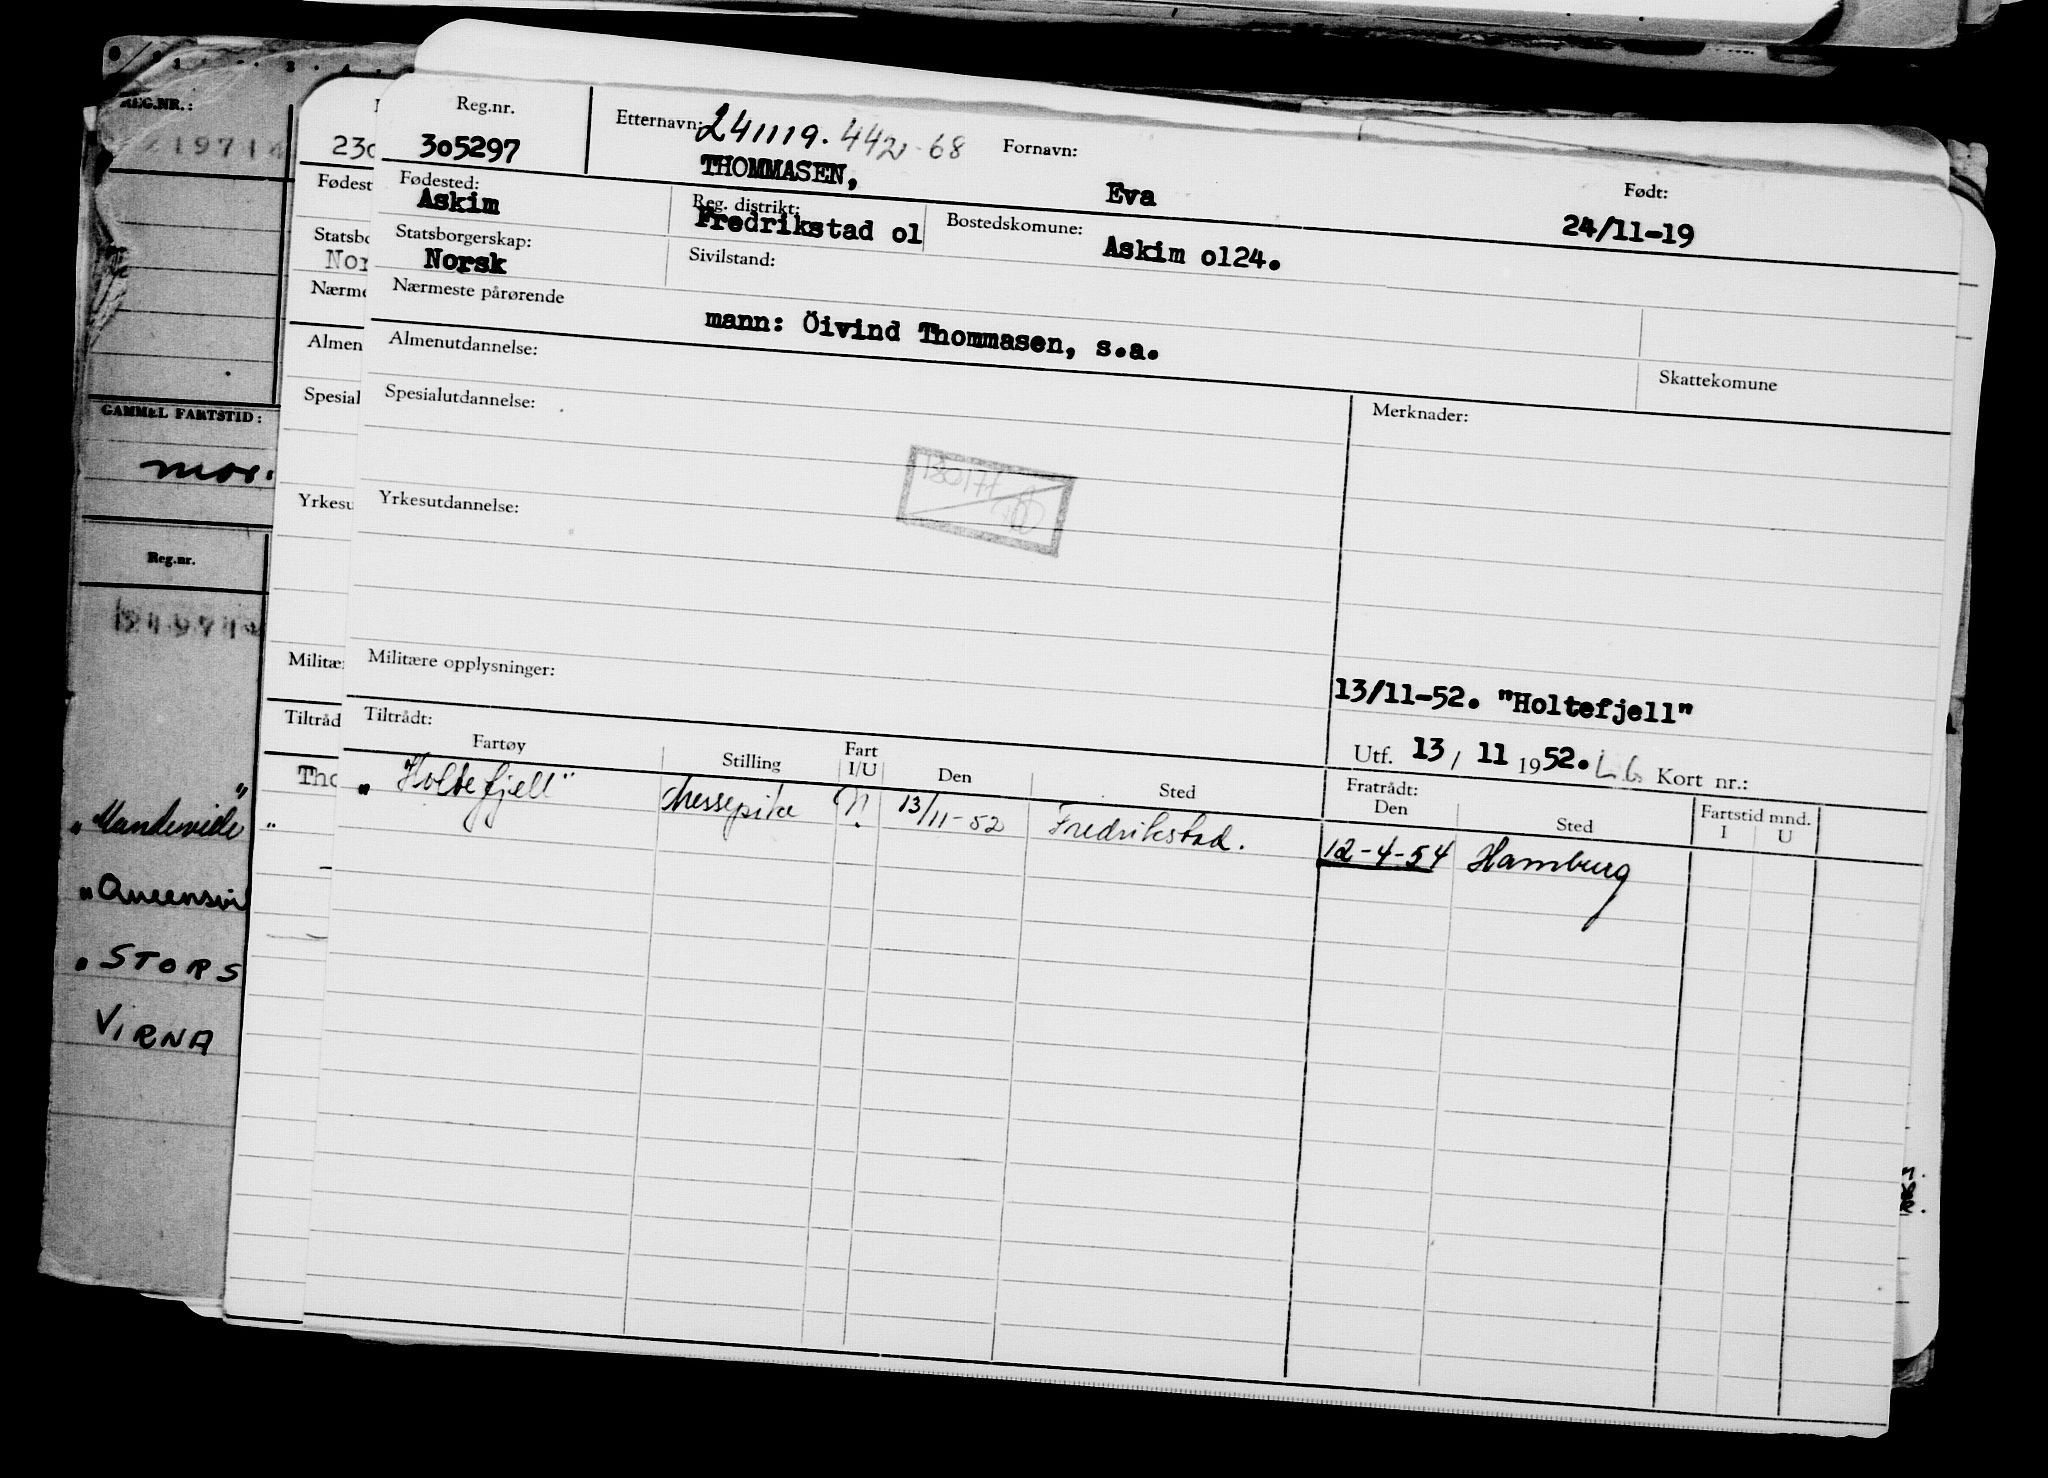 REG.NR.:
219714
GAMMEL FARTSTID:
mor.
Reg.nr.
"Mandeville"
"Queensvi
"STORS
VIRNA
230
Fødest
Statsbo
Nor
Nærme
Almen
Spesial
Yrkesu
Militæ
Tiltråd
Tho
Reg.nr. Etternavn: 241119. 442 - 68 Fornavn: Født:
305297 THOMMASEN, Eva 24/11-19
Fødested: Reg. distrikt: Bostedskomune:
Askim Fredrikstad o1 Askim o124.
Statsborgerskap: Sivilstand:
Norsk
Nærmeste pårørende
mann: Öivind Thommasen, s.a.
Skattekomune
Almenutdannelse: Merknader:
Spesialutdannelse:
Yrkesutdannelse:
Militære opplysninger:
13/11-52. "Holtefjell"
Tiltrådt: Utf. 13 / 11 1952. Kort nr.:
Fartøy Stilling Fart I/U Den Sted Fratrådt: Den Sted Fartstid mnd. I U
"Holtefjell" Messepike N. 13/11-52 Fredrikstad. 12-4-54 Hamburg